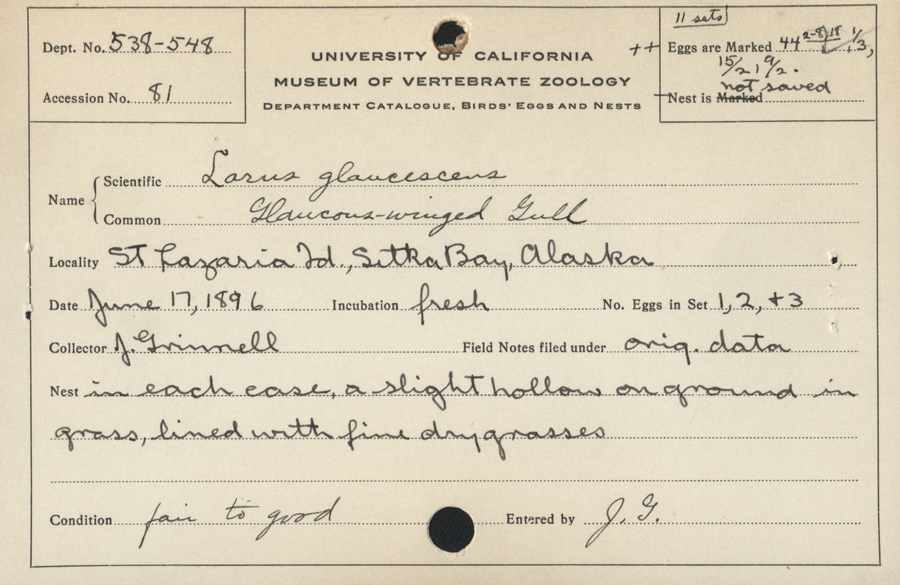 11 sets
Dept. No. 538-548
UNIVERSITY OF CALIFORNIA
++ Eggs are Marked 44
15/2 19/2.
MUSEUM OF VERTEBRATE ZOOLOGY
Accession No. 81
DEPARTMENT CATALOGUE, BIRDS' EGGS AND NESTS
not saved
Nest is Marked
Name
Scientific Larus glaucescens
Common Glaucous-winged Gull
Locality St Lazaria Id., Sitka Bay, Alaska
Date June 17, 1896 Incubation fresh No. Eggs in Set 1, 2, +3
Collector J. Grinnell Field Notes filed under orig. data
Nest in each case, a slight hollow on ground in
grass, lined with fine dry grasses
Condition fair to good Entered by J. G.